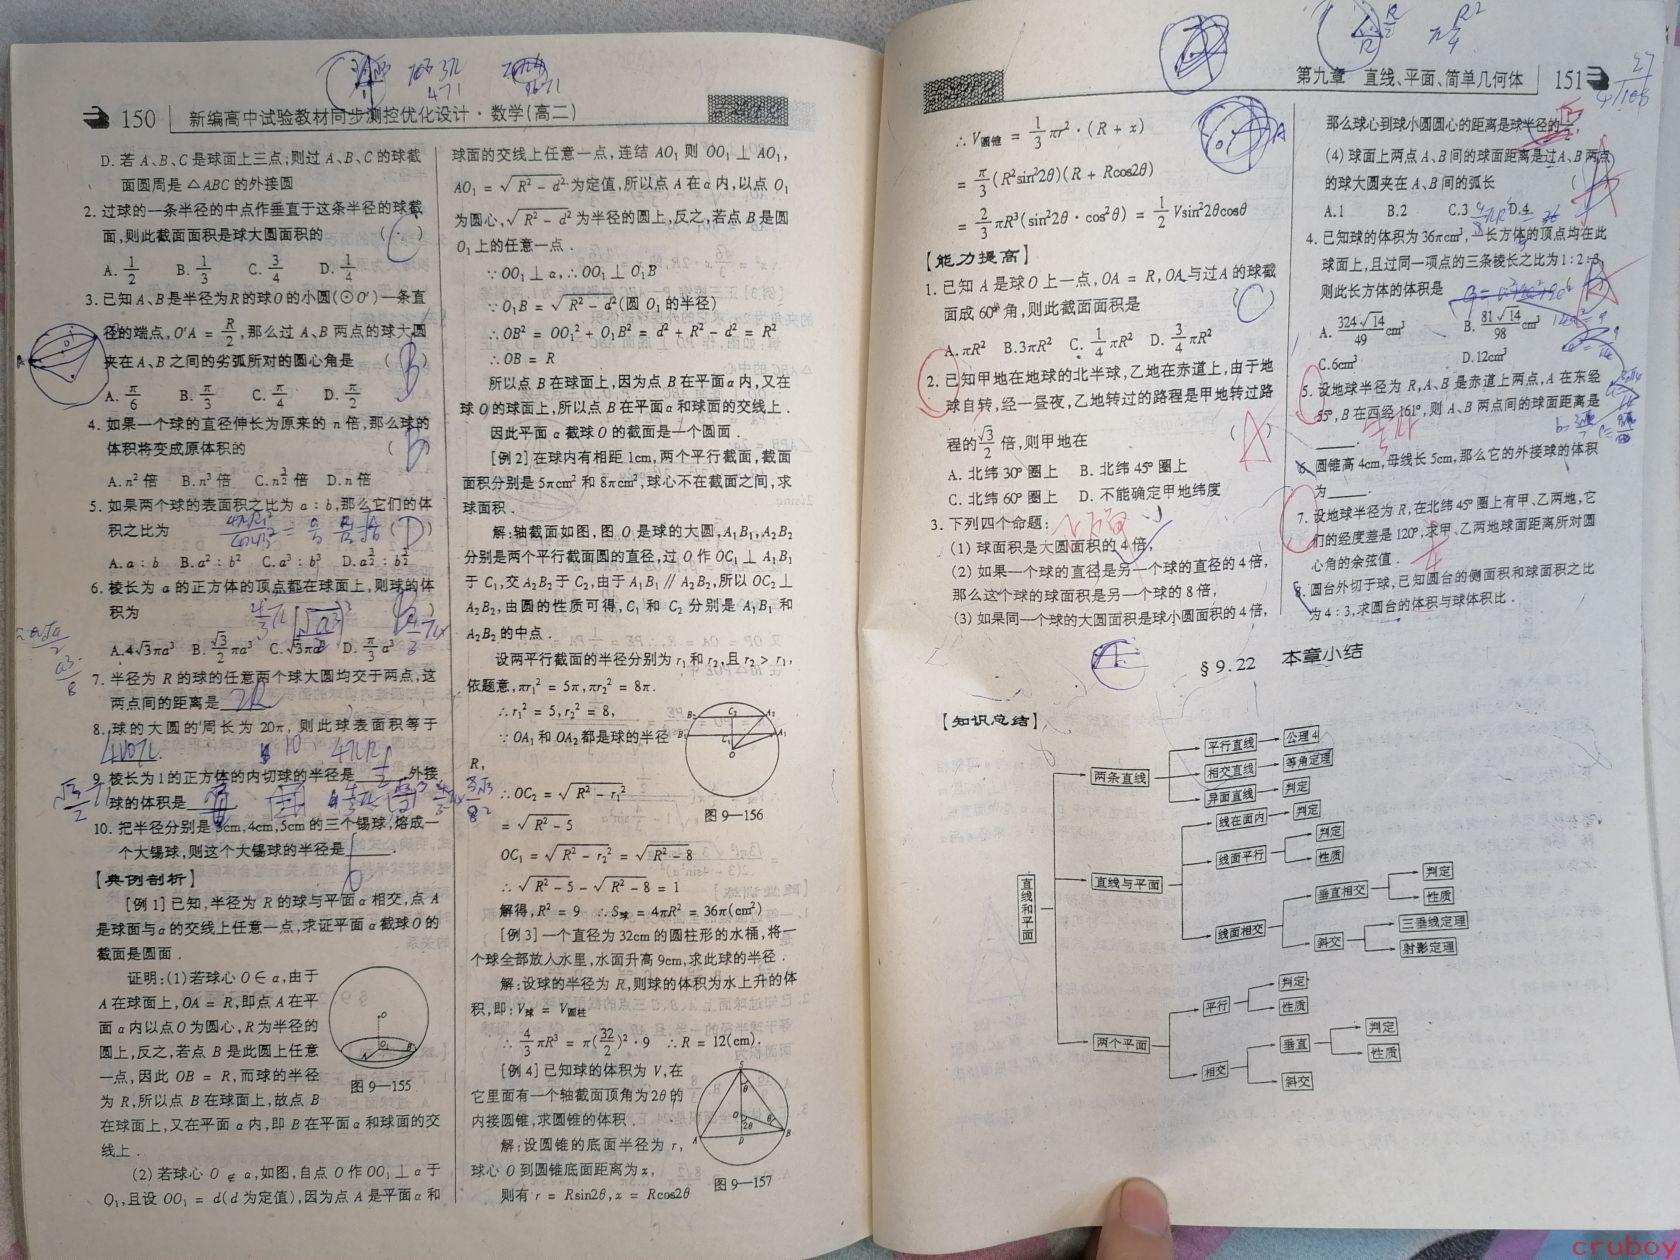 150 新编高中试验教材同步测控优化设计·数学(高二)
D. 若 A、B、C 是球面上三点;则过 A、B、C 的球截
面圆周是 △ABC 的外接圆
2. 过球的一条半径的中点作垂直于这条半径的球截
面,则此截面面积是球大圆面积的 ( )
A. 1/2 B. 1/3 C. 3/4 D. 1/4
3. 已知 A、B 是半径为 R 的球 O 的小圆(⊙O′)一条直
径的端点, O′A = R/2, 那么过 A、B 两点的球大圆
夹在 A、B 之间的劣弧所对的圆心角是 ( B )
A. π/6 B. π/3 C. π/4 D. π/2
4. 如果一个球的直径伸长为原来的 n 倍,那么球的
体积将变成原体积的 ( B )
A. n² 倍 B. n³ 倍 C. n^(3/2) 倍 D. n 倍
5. 如果两个球的表面积之比为 a : b,那么它们的体
积之比为 ( D )
A. a : b B. a² : b² C. a³ : b³ D. a^(3/2) : b^(3/2)
6. 棱长为 a 的正方体的顶点都在球面上,则球的体
积为
A. 4√3πa³ B. √3/2 πa³ C. √3πa³ D. π/3 a³
7. 半径为 R 的球的任意两个球大圆均交于两点,这
两点间的距离是 2R
8. 球的大圆的周长为 20π, 则此球表面积等于
400π.
9. 棱长为 1 的正方体的内切球的半径是 1/2 ,外接
球的体积是
10. 把半径分别是 3cm,4cm,5cm 的三个锡球,熔成一
个大锡球,则这个大锡球的半径是____.
【典例剖析】
[例 1] 已知,半径为 R 的球与平面 α 相交,点 A
是球面与 α 的交线上任意一点,求证平面 α 截球 O 的
截面是圆面.
证明:(1)若球心 O∈α,由于
A 在球面上,OA = R,即点 A 在平
面 α 内以点 O 为圆心,R 为半径的
圆上,反之,若点 B 是此圆上任意
一点,因此 OB = R,而球的半径
为 R,所以点 B 在球面上,故点 B
图 9—155
在球面上,又在平面 α 内,即 B 在平面 α 和球面的交
线上.
(2) 若球心 O∉α,如图,自点 O 作 OO₁⊥α 于
O₁,且设 OO₁ = d(d 为定值),因为点 A 是平面 α 和
球面的交线上任意一点,连结 AO₁ 则 OO₁⊥AO₁,
AO₁ = √(R² − d²) 为定值,所以点 A 在 α 内,以点 O₁
为圆心,√(R² − d²) 为半径的圆上,反之,若点 B 是圆
O₁ 上的任意一点.
∵OO₁⊥α,∴OO₁⊥O₁B
∵O₁B = √(R² − d²)(圆 O₁ 的半径)
∴OB² = OO₁² + O₁B² = d² + R² − d² = R²
∴OB = R
所以点 B 在球面上,因为点 B 在平面 α 内,又在
球 O 的球面上,所以点 B 在平面 α 和球面的交线上.
因此平面 α 截球 O 的截面是一个圆面.
[例 2] 在球内有相距 1cm,两个平行截面,截面
面积分别是 5πcm² 和 8πcm²,球心不在截面之间,求
球面积.
解:轴截面如图,图 O 是球的大圆,A₁B₁,A₂B₂
分别是两个平行截面圆的直径,过 O 作 OC₁⊥A₁B₁
于 C₁,交 A₂B₂ 于 C₂,由于 A₁B₁∥A₂B₂,所以 OC₂⊥
A₂B₂,由圆的性质可得,C₁ 和 C₂ 分别是 A₁B₁ 和
A₂B₂ 的中点.
设两平行截面的半径分别为 r₁ 和 r₂,且 r₂ > r₁,
依题意,πr₁² = 5π,πr₂² = 8π.
∴r₁² = 5, r₂² = 8,
∵OA₁ 和 OA₂ 都是球的半径
R,
∴OC₂ = √(R² − r₁²)
= √(R² − 5)
图 9—156
OC₁ = √(R² − r₂²) = √(R² − 8)
∴√(R² − 5) − √(R² − 8) = 1
解得,R² = 9 ∴S球 = 4πR² = 36π(cm²)
[例 3] 一个直径为 32cm 的圆柱形的水桶,将一
个球全部放入水里,水面升高 9cm,求此球的半径.
解:设球的半径为 R,则球的体积为水上升的体
积,即:V球 = V圆柱
∴4/3 πR³ = π(32/2)²·9 ∴R = 12(cm).
[例 4] 已知球的体积为 V,在
它里面有一个轴截面顶角为 2θ 的
内接圆锥,求圆锥的体积.
解:设圆锥的底面半径为 r,
球心 O 到圆锥底面距离为 x,
则有 r = Rsin2θ,x = Rcos2θ
图 9—157
第九章 直线、平面、简单几何体 151
∴V圆锥 = 1/3 πr²·(R + x)
= π/3 (R²sin²2θ)(R + Rcos2θ)
= 2/3 πR³(sin²2θ·cos²θ) = 1/2 Vsin²2θcos²θ
【能力提高】
1. 已知 A 是球 O 上一点,OA = R,OA 与过 A 的球截
面成 60° 角,则此截面面积是
A. πR² B. 3πR² C. 1/4 πR² D. 3/4 πR²
2. 已知甲地在地球的北半球,乙地在赤道上,由于地
球自转,经一昼夜,乙地转过的路程是甲地转过路
程的 √3/2 倍,则甲地在 ( A )
A. 北纬 30° 圈上 B. 北纬 45° 圈上
C. 北纬 60° 圈上 D. 不能确定甲地纬度
3. 下列四个命题:
(1) 球面积是大圆面积的 4 倍,
(2) 如果一个球的直径是另一个球的直径的 4 倍,
那么这个球的球面积是另一个球的 8 倍,
(3) 如果同一个球的大圆面积是球小圆面积的 4 倍,
那么球心到球小圆圆心的距离是球半径的
(4) 球面上两点 A、B 间的球面距离是过 A、B 两点
的球大圆夹在 A、B 间的弧长 (
A. 1 B. 2 C. 3 D. 4
4. 已知球的体积为 36πcm³,一长方体的顶点均在此
球面上,且过同一项点的三条棱长之比为 1:2:3,
则此长方体的体积是
A. 324√14/49 cm³ B. 81√14/98 cm³
C. 6cm³ D. 12cm³
5. 设地球半径为 R,A、B 是赤道上两点,A 在东经
55°,B 在西经 161°,则 A、B 两点间的球面距离是
____.
6. 圆锥高 4cm,母线长 5cm,那么它的外接球的体积
为____.
7. 设地球半径为 R,在北纬 45° 圈上有甲、乙两地,它
们的经度差是 120°,求甲、乙两地球面距离所对圆
心角的余弦值.
8. 圆台外切于球,已知圆台的侧面积和球面积之比
为 4 : 3,求圆台的体积与球体积比.
§9.22 本章小结
【知识总结】
直线和平面
两条直线
平行直线 公理4
相交直线 等角定理
异面直线 判定
直线与平面
线在面内 判定
线面平行 判定
性质
线面相交
垂直相交 判定
性质
斜交 三垂线定理
射影定理
两个平面
平行 判定
性质
相交
垂直 判定
性质
斜交
cruboy